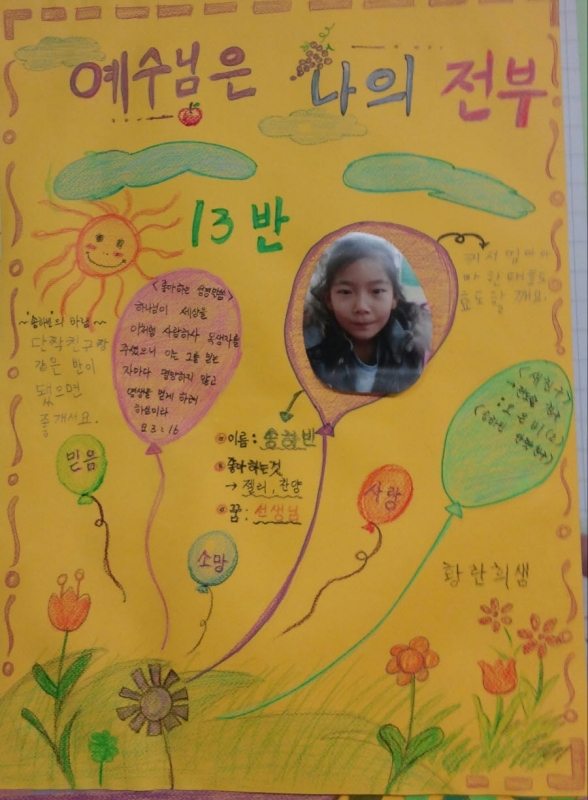 예수님은 나의 전부
13반
<좋아하는 성경말씀>
하나님이 세상을
이처럼 사랑하사 독생자를
주셨으니 이는 그를 믿는
자마다 멸망하지 않고
영생을 얻게 하려
하심이라
요3:16
~송하빈의 바램~
단짝친구랑
같은 반이
됐으면
좋겠서요.
커서 엄마아
빠 한테 효도
효도할 께요.
이름: 송하빈
좋아하는것
→ 젤리, 찬양
꿈: 선생님
<새친구>
믿음
소망
사랑
황란희샘